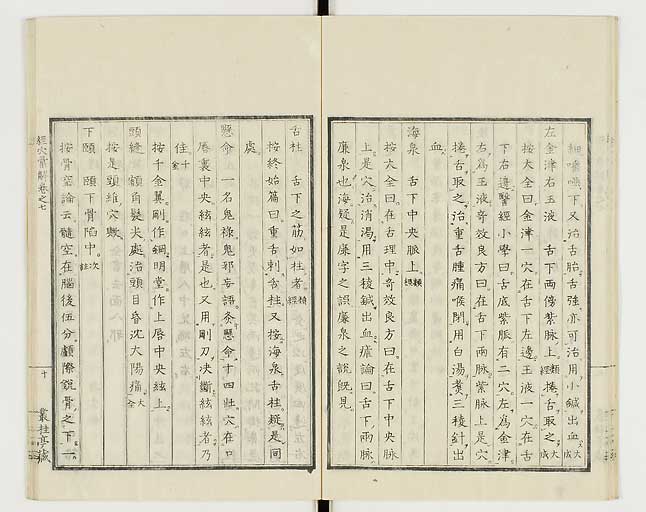 細嚥嚥下又治舌胎舌強亦可治用小鍼出血大成
左金津右玉液　舌下两傍紫脉上類經捲舌取之大成
按大全曰金津一穴在舌下左邊玉液一穴在舌
下右邊醫經小學曰舌底紫脈有二穴左爲金津
右爲玉液奇效良方曰在舌下兩脉紫脉上是穴
捲舌取之治重舌腫痛喉閉用白湯煑三稜針出
血
海泉　舌下中央脈上類經
按大全曰在舌理中奇效良方曰在舌下中央脉
上是穴治消渴用三稜鍼出血瘧論曰舌下兩脉
廉泉也海疑是廉字之誤廉泉之說既見
舌柱　舌下之筋如柱者類經
按終始篇曰重舌刺舌柱又按海泉舌柱疑是同
處
懸命　一名鬼祿鬼邪妄語灸懸命十四壯穴在口
唇裏中央絃絃者是也又用剛刀决斷絃絃者乃
佳千金
按千金翼剛作鋼明堂作上唇中央絃上
頭縫　額角髮尖處治頭目昏沈太陽痛大全
按是頭維穴歟
下頤　頤下骨陷中次註
按骨空論云髓空在腦後伍分顱際銳骨之下一
經穴彙解卷之七
十
叢桂亭藏